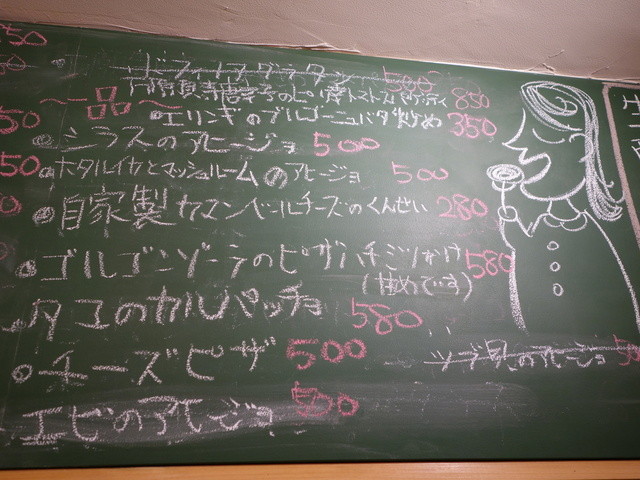 350
ドフィノアグラタン 500
青唐辛子のピリ辛トマトスパゲッティ 850
〜一品〜
エリンギのブルゴーニュバタ炒め 350
50
シラスのアヒージョ 500
50
ホタルイカとマッシュルームのアヒージョ 500
自家製カマンベールチーズのくんせい 280
ゴルゴンゾーラのピザハチミツかけ 580
(甘めです)
タコのカルパッチョ 580
チーズピザ 500
ツブ貝のアヒージョ
エビのアヒージョ 500